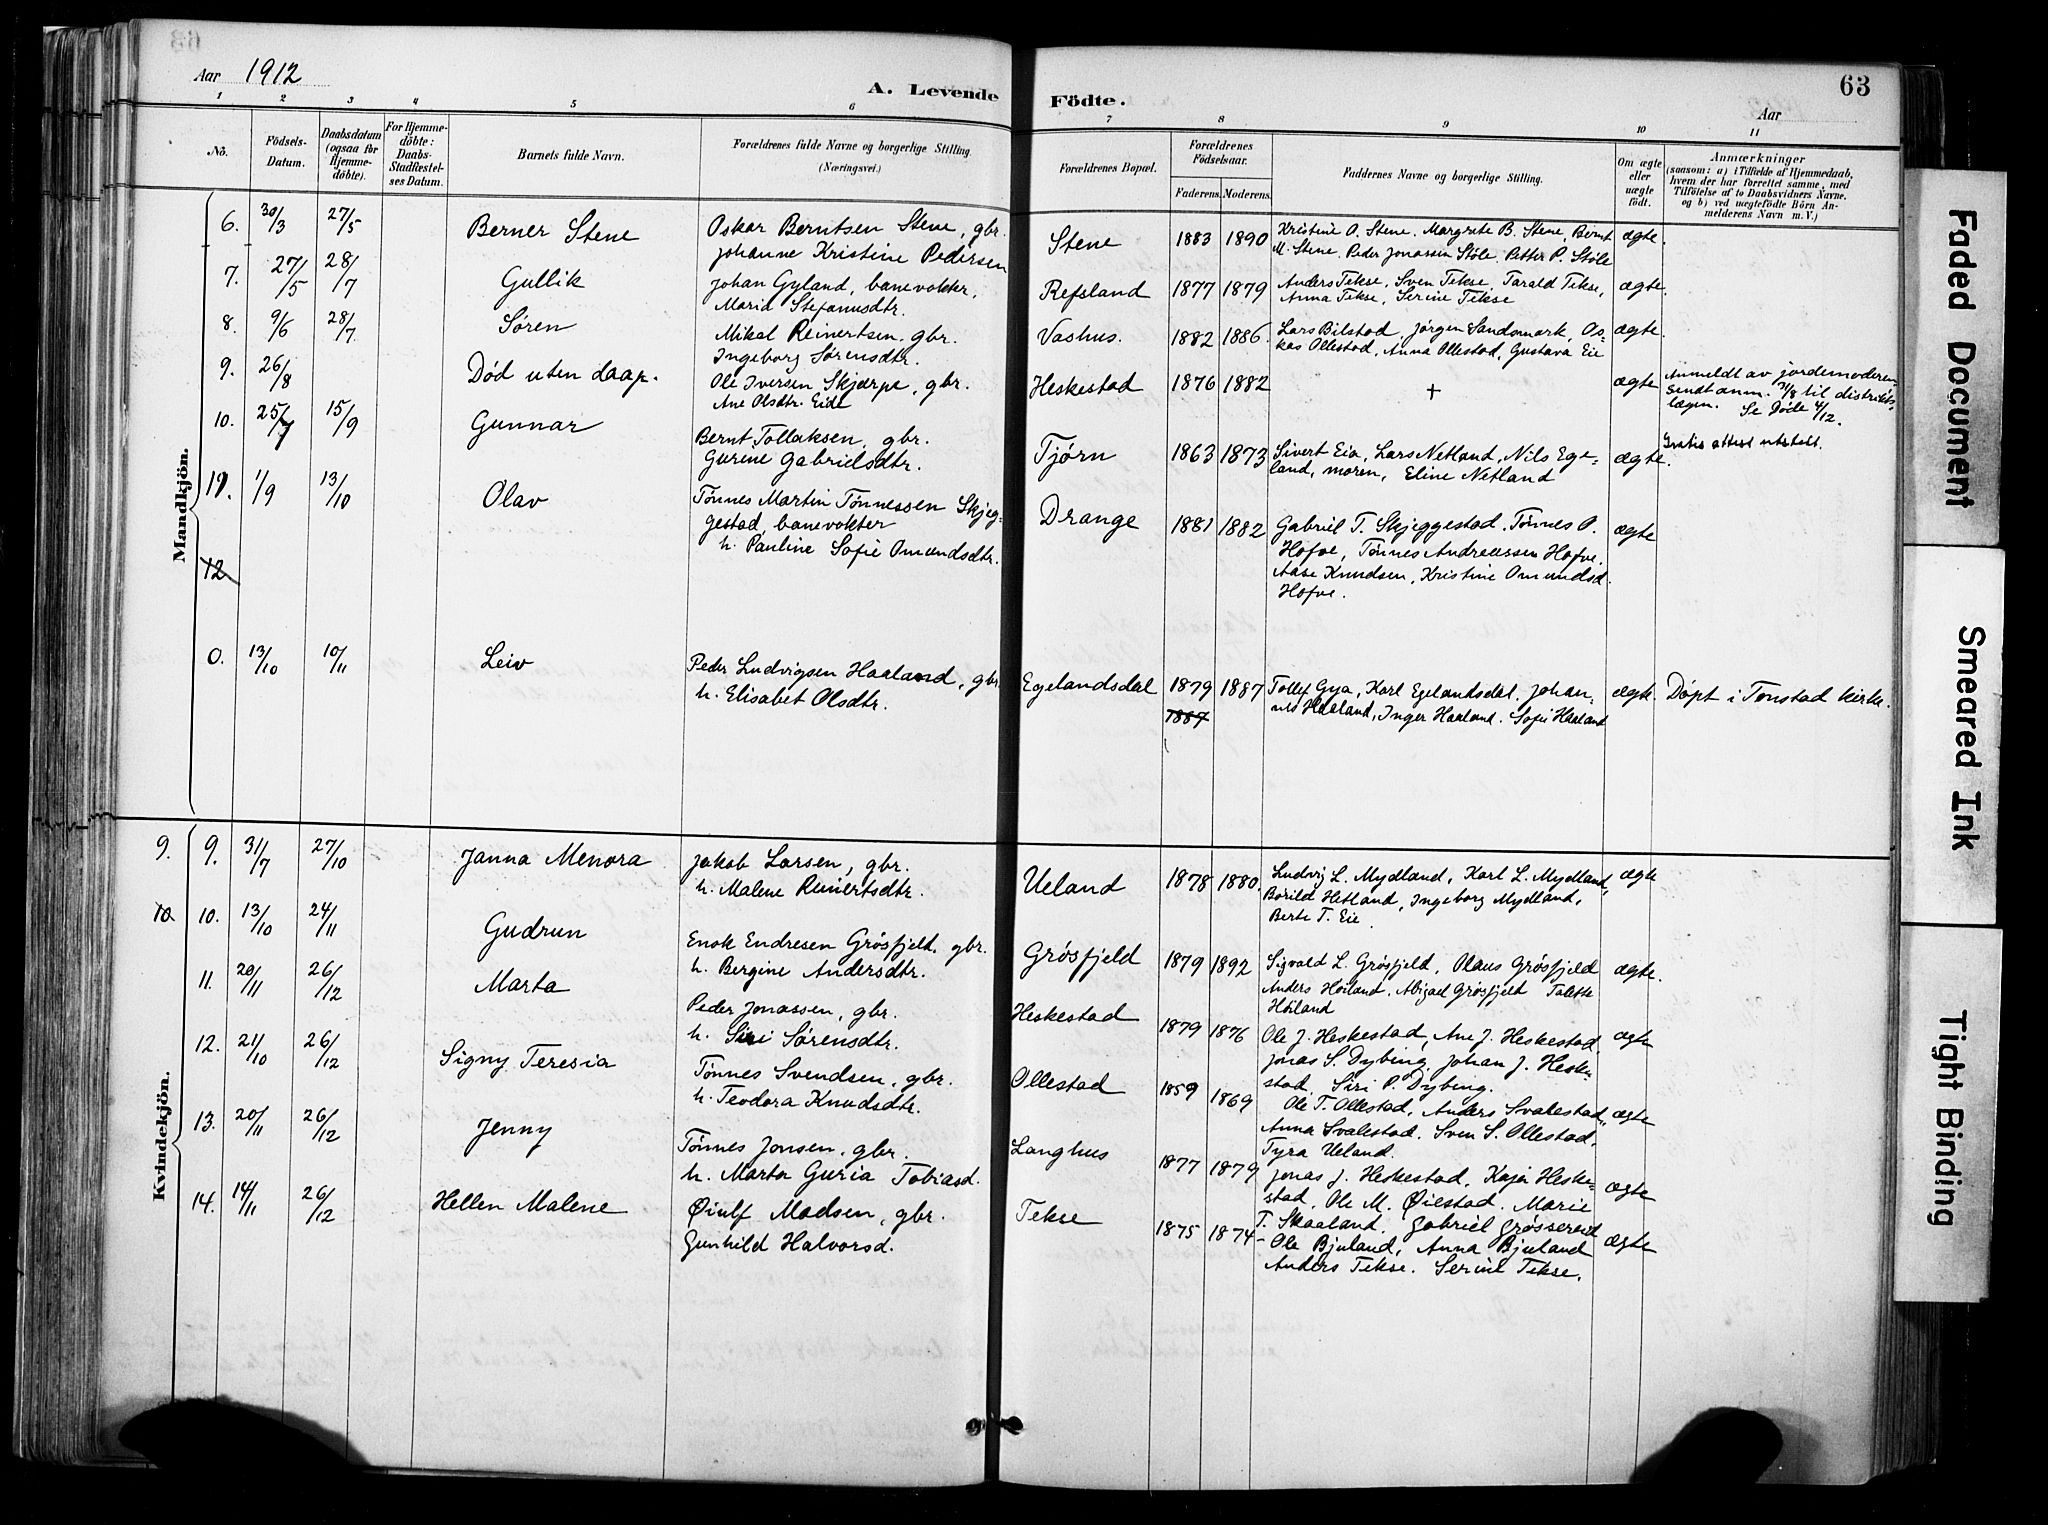 Aar 1912
A. Levende Födte.
63
Aar
1 2 3 4 5 6 7 8 9 10 11
No.
Födsels-Datum.
Daabsdatum (ogsaa for Hjemme-döbte).
For Hjemme-döbte: Daabs-Stadfæstel-ses Datum.
Barnets fulde Navn.
Forældrenes fulde Navne og borgerlige Stilling. (Næringsvei.)
Forældrenes Bopæl.
Forældrenes Födselsaar.
Faderens. Moderens.
Faddernes Navne og borgerlige Stilling.
Om ægte eller uægte födt.
Anmærkninger
(saasom: a) i Tilfælde af Hjemmedaab,
hvem der har forrettet samme, med
Tilföielse af to Daabsvidners Navne.
og b) ved uægtefödte Börn An-
melderens Navn m. V.)
Mandkjön.
6. 30/3 27/5 Berner Stene Oskar Berntsen Stene, gbr. Stene 1883 1890 Kristine O. Stene, Margrete B. Stene, Bernt ægte.
Johanne Kristine Pedersen M. Stene. Peder Jonassen Stöle. Petter P. Stöle
7. 27/5 28/7 Gullik Johan Gyland, banevokter. Refsland 1877 1879 Anders Tekse, Sven Tekse, Tarald Tekse, ægte.
Marid Stefanusdtr. Anna Tekse, Serine Tekse
8. 9/6 28/7 Søren Mikal Reinertsen, gbr. Vashus. 1882 1886. Lars Bilstad, Jørgen Sandsmark, Os- ægte.
Ingeborg Sørensdtr. kas Ollestad, Anna Ollestad, Gustava Eie
9. 26/8 Død uten daap. Ole Iversen Skjærpe, gbr. Heskestad 1876 1882 + ægte Anmeldt av jordemoderen,
Ane Olsdtr. Eide sendt anm. 31/8 til distrikts-
lægen. Se Døde 4/12.
10. 25/7 15/9 Gunnar Bernt Tollaksen, gbr. Tjørn 1863 1873 Sivert Eia, Lars Netland, Nils Ege- ægte. Gratis attest utstelt.
Gurine Gabrielsdtr. land, moren, Eline Netland
11. 1/9 13/10 Olav Tønnes Martin Tønnessen Skjeg- Drange 1881 1882 Gabriel T. Skjeggestad. Tønnes O. ægte
gestad, banevokter Hofve, Tønnes Andreassen Hofve.
h. Pauline Sofie Omundsdtr. Aase Knudsen, Kristine Omundsd.
Hofve.
12
0. 13/10 10/11 Leiv Peder Ludvigsen Haaland, gbr. Egelandsdal 1879 1887 Tollef Gya, Karl Egelandsdal, Johan- ægte. Døpt i Tonstad kirke.
h. Elisabet Olsdtr. 1887 nes Haaland, Inger Haaland. Sofie Haaland
Kvindekjön.
9. 9. 31/7 27/10 Janna Menora Jakob Larsen, gbr. Ueland 1878 1880. Ludvig L. Mydland, Karl L. Mydland, ægte
h. Malene Reinertsdtr. Borild Hetland, Ingeborg Mydland,
Berte T. Eie
10 10. 13/10 24/11 Gudrun Enok Endresen Grøsfjeld. gbr. Grøsfjeld 1879 1892 Sigvald L. Grøsfjeld, Olaus Grøsfjeld ægte.
h. Bergine Andersdtr. Anders Høiland, Abigael Grøsfjeld Talette
Høiland
11. 20/11 26/12 Marta Peder Jonassen, gbr. Heskestad 1879 1876 Ole J. Heskestad, Ane J. Heskestad, ægte
h. Siri Sørensdtr. Jonas S. Dybing, Johan J. Heske-
stad, Siri P. Dybing.
12. 21/10 26/12 Signy Teresia Tønnes Svendsen, gbr. Ollestad 1859 1869 Ole T. Ollestad, Anders Svalestad, ægte
h. Teodora Knudsdtr. Anna Svalestad. Sven S. Ollestad,
Tyra Ueland.
13. 20/11 26/12 Jenny Tønnes Jonsen, gbr. Langhus 1877 1879 Jonas J. Heskestad, Kaja Heske- ægte
h. Marta Guria Tobiasd. stad, Ole M. Øiestad. Marie
T. Skaaland.
14. 14/11 26/12 Hellen Malene Øiulf Madsen, gbr. Tekse 1875 1874 Gabriel Grøssereid ægte
Gunhild Halvorsd. - Ole Bjuland, Anna Bjuland
Anders Tekse. Serine Tekse.
Faded Document
Smeared Ink
Tight Binding